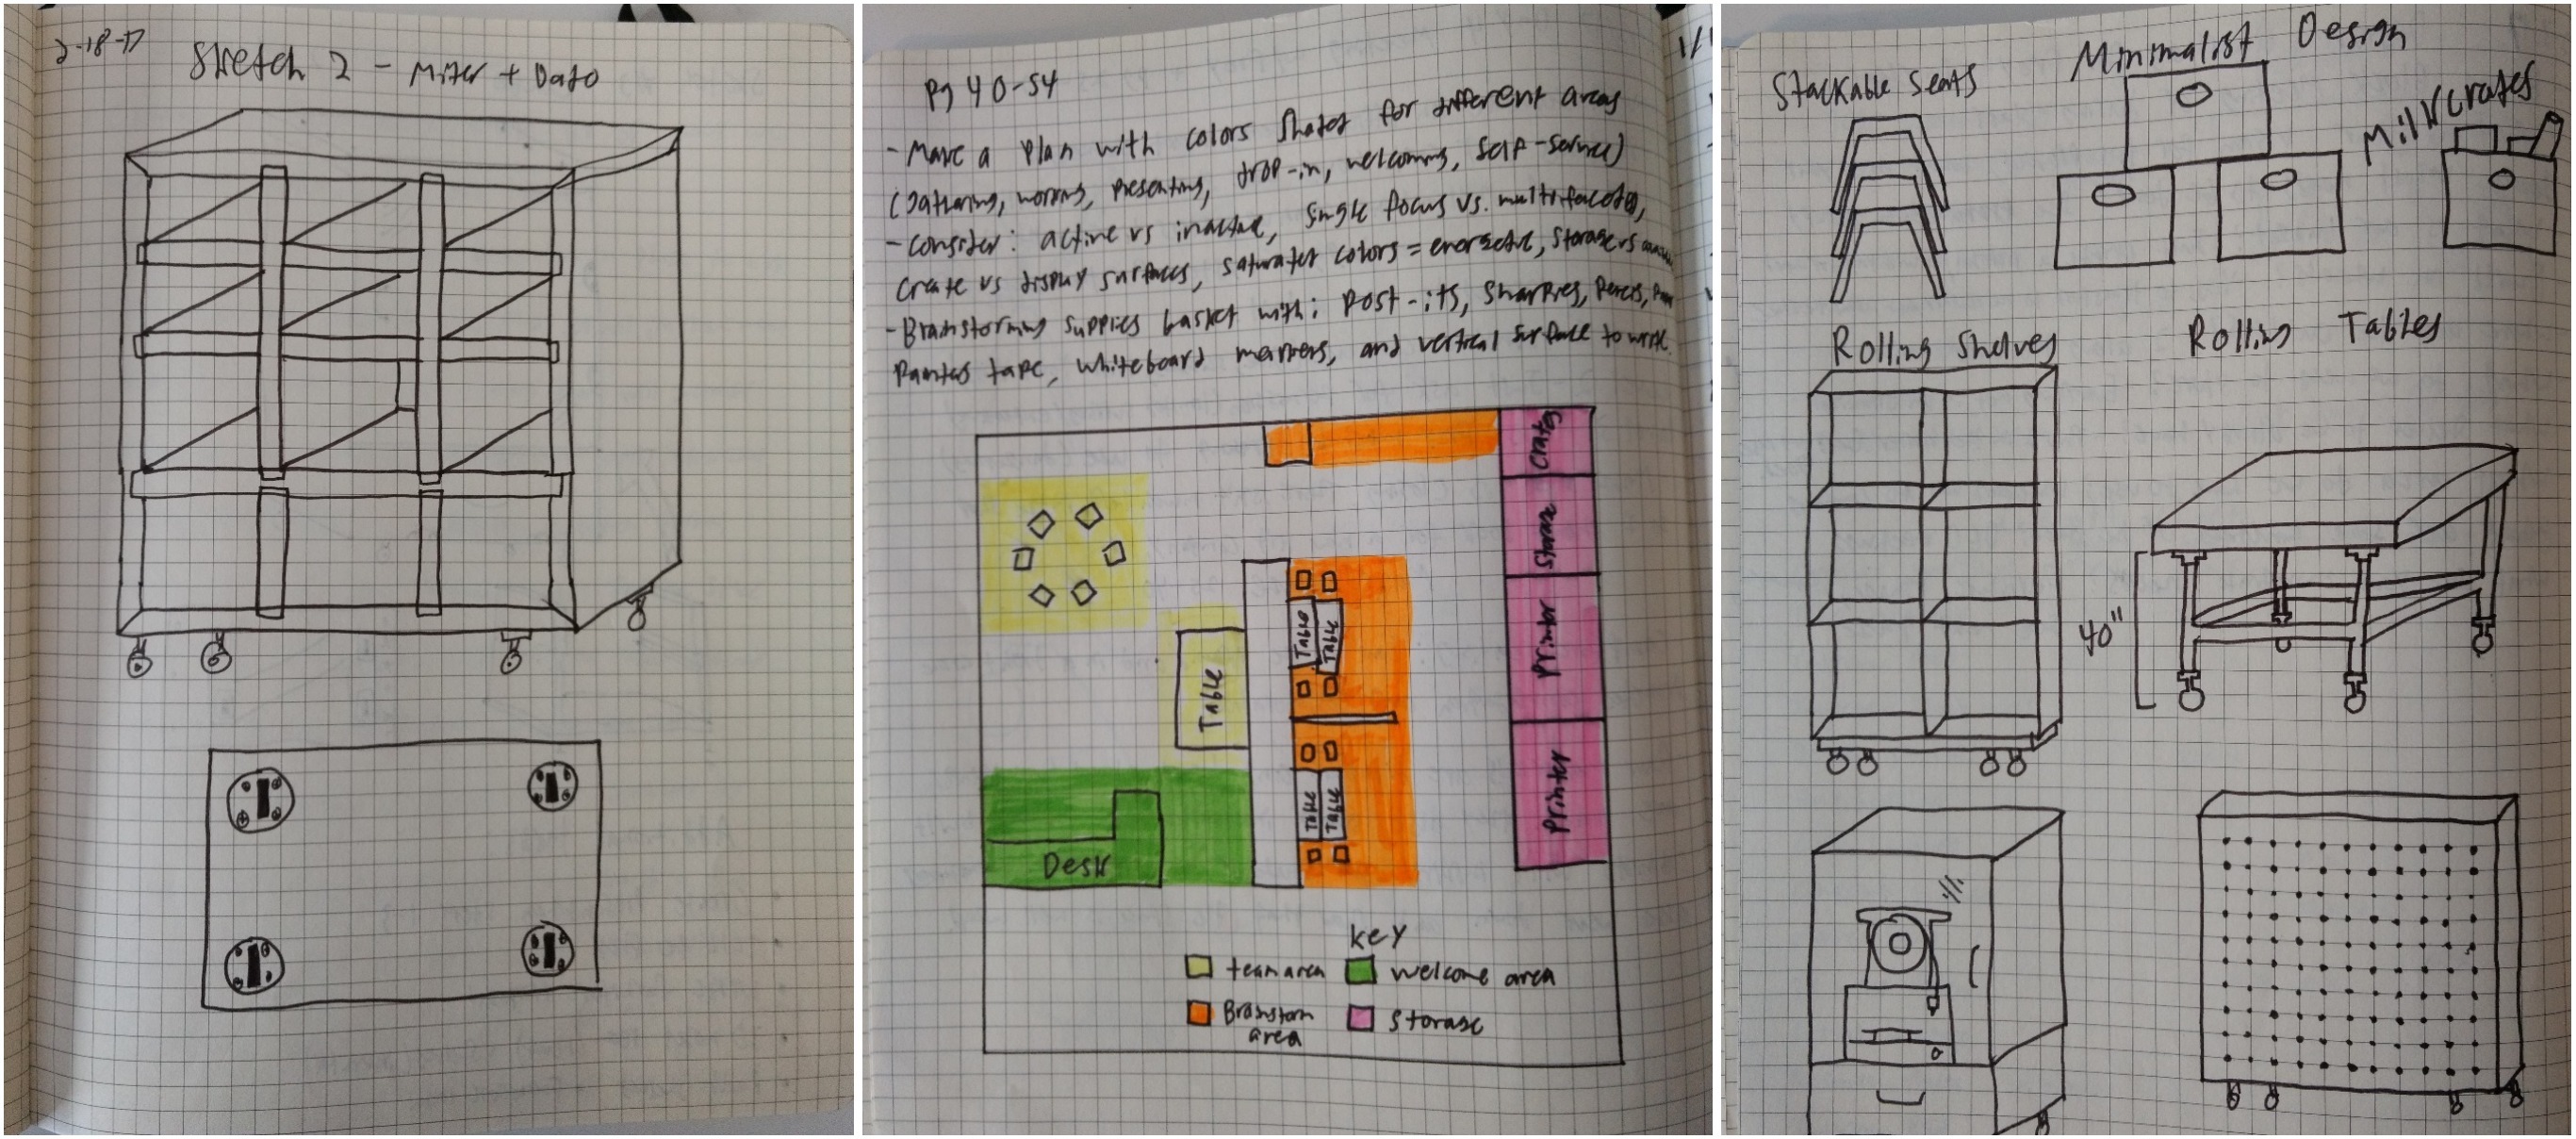 2-18-17
Sketch 2 - Miter + Dato
Pg 40-54
- Make a plan with colors shades for different areas
(gathering, working, presenting, drop-in, welcoming, self-service)
- Consider: active vs inactive, single focus vs. multifaceted,
Create vs display surfaces, saturated colors = energetic, storage vs
- Brainstorming supplies basket with: Post-its, Sharpies, Pencils,
Painters tape, whiteboard markers, and vertical surface to work.
Crates
Storage
Printer
Printer
Table
Table
Table
Table
Table
Desk
key
team area
welcome area
Brainstorm
area
Storage
Minimalist Design
Stackable Seats
Milk crates
Rolling Shelves
Rolling Tables
40"